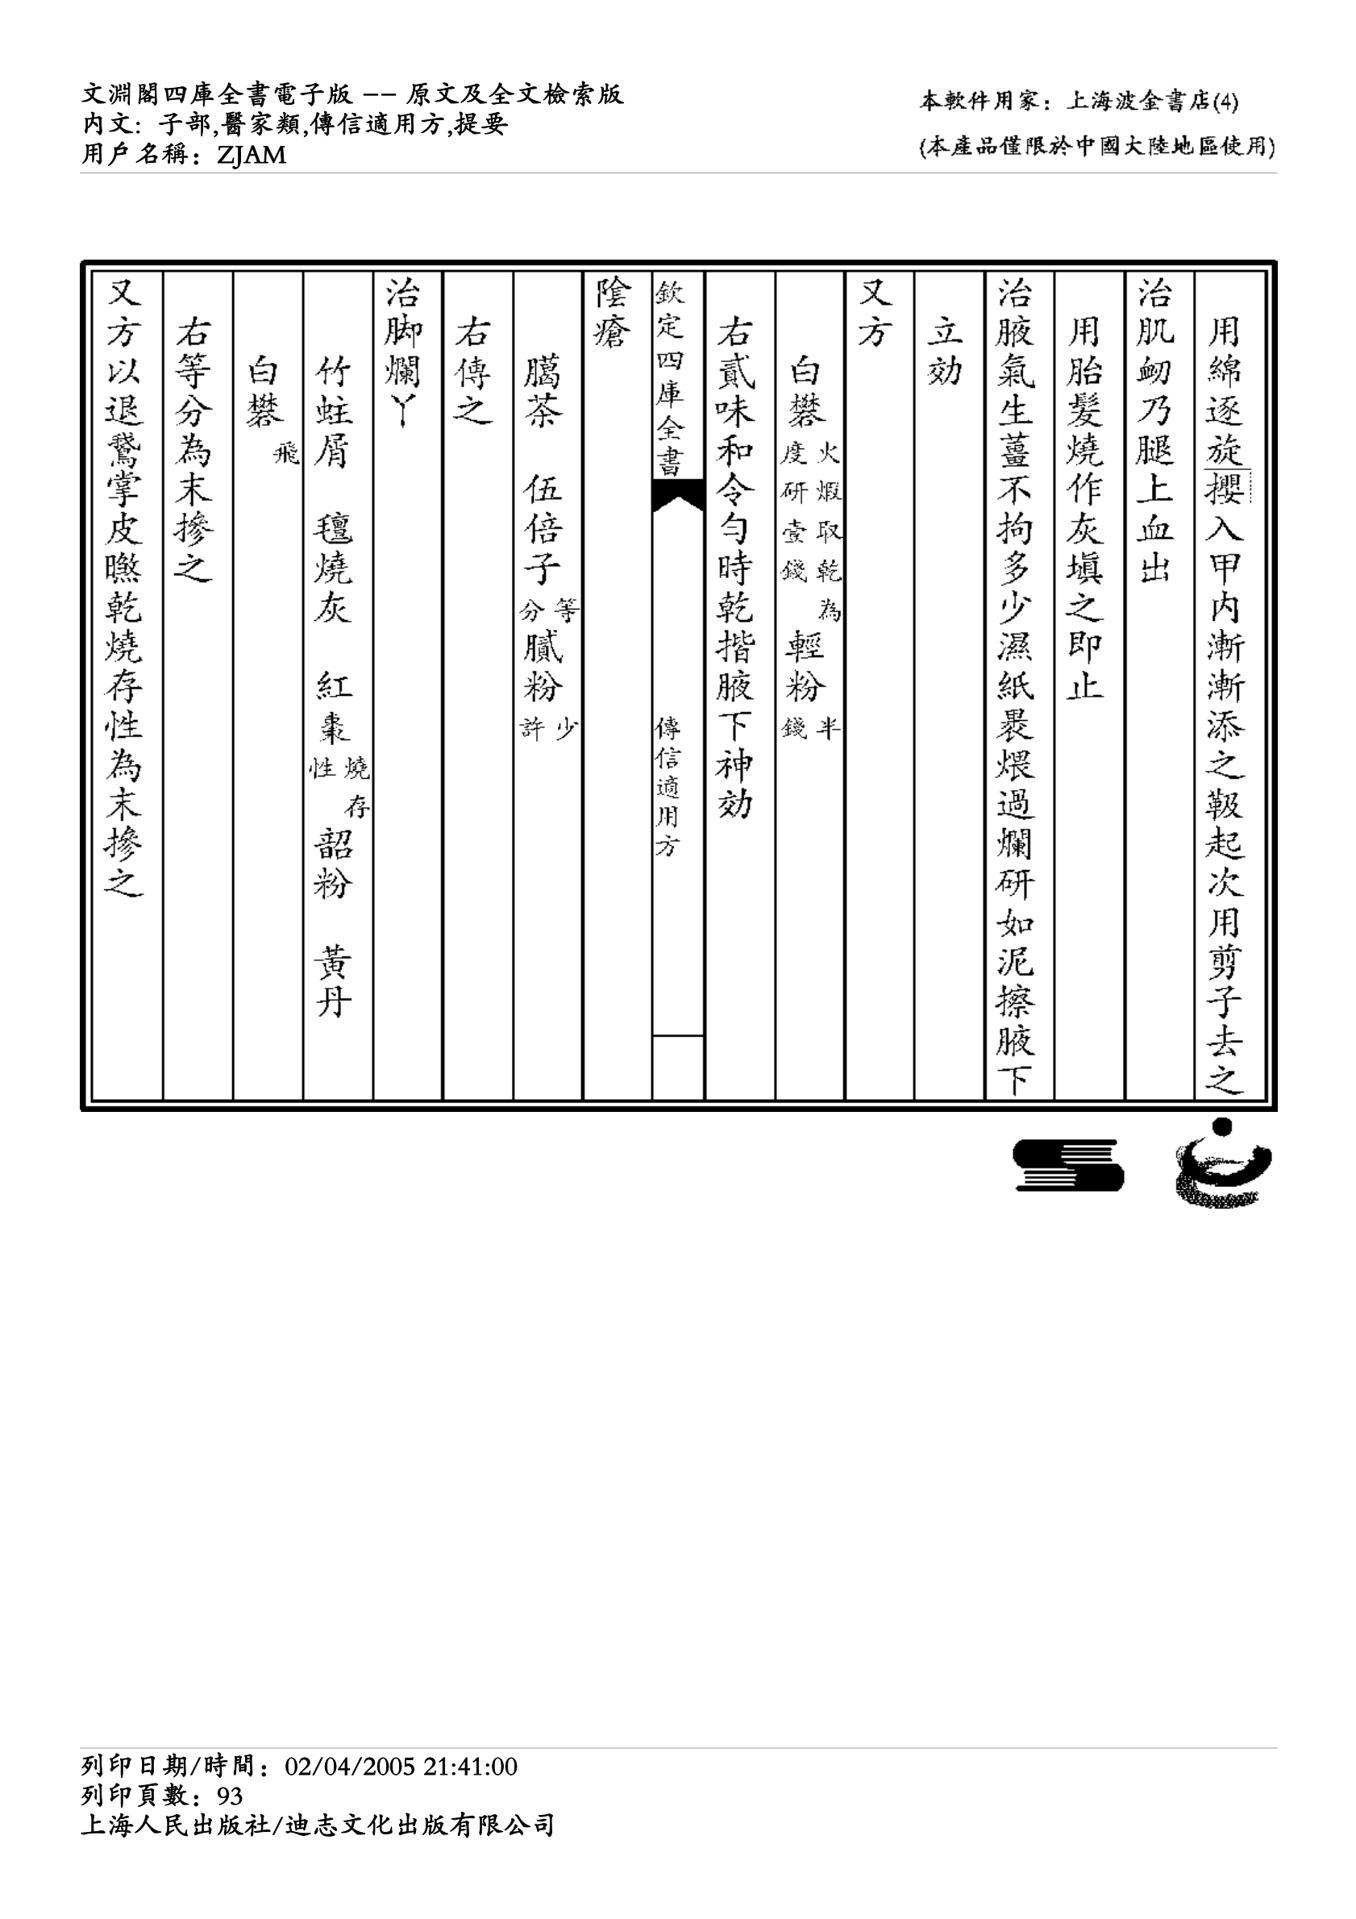 文淵閣四庫全書電子版 -- 原文及全文檢索版
内文: 子部,醫家類,傳信適用方,提要
用戶名稱: ZJAM
本軟件用家: 上海波金書店(4)
(本產品僅限於中國大陸地區使用)
用綿逐旋㩳入甲内漸漸添之鞎起次用剪子去之
治肌衂乃腿上血出
用胎髮燒作灰填之即止
治腋氣生薑不拘多少濕紙褁煨過爛研如泥擦腋下
立効
又方
白礬火煆取乾為度研壹錢 輕粉半錢
右貳味和令勻時乾揩腋下神効
欽定四庫全書 傳信適用方
陰瘡
臈茶 伍倍子等分 膩粉少許
右傳之
治脚爛丫
竹蛀屑 氊燒灰 紅棗燒存性 韶粉 黃丹
白礬飛
右等分為末摻之
又方以退鵞掌皮㬠乾燒存性為末摻之
列印日期/時間: 02/04/2005 21:41:00
列印頁數: 93
上海人民出版社/迪志文化出版有限公司